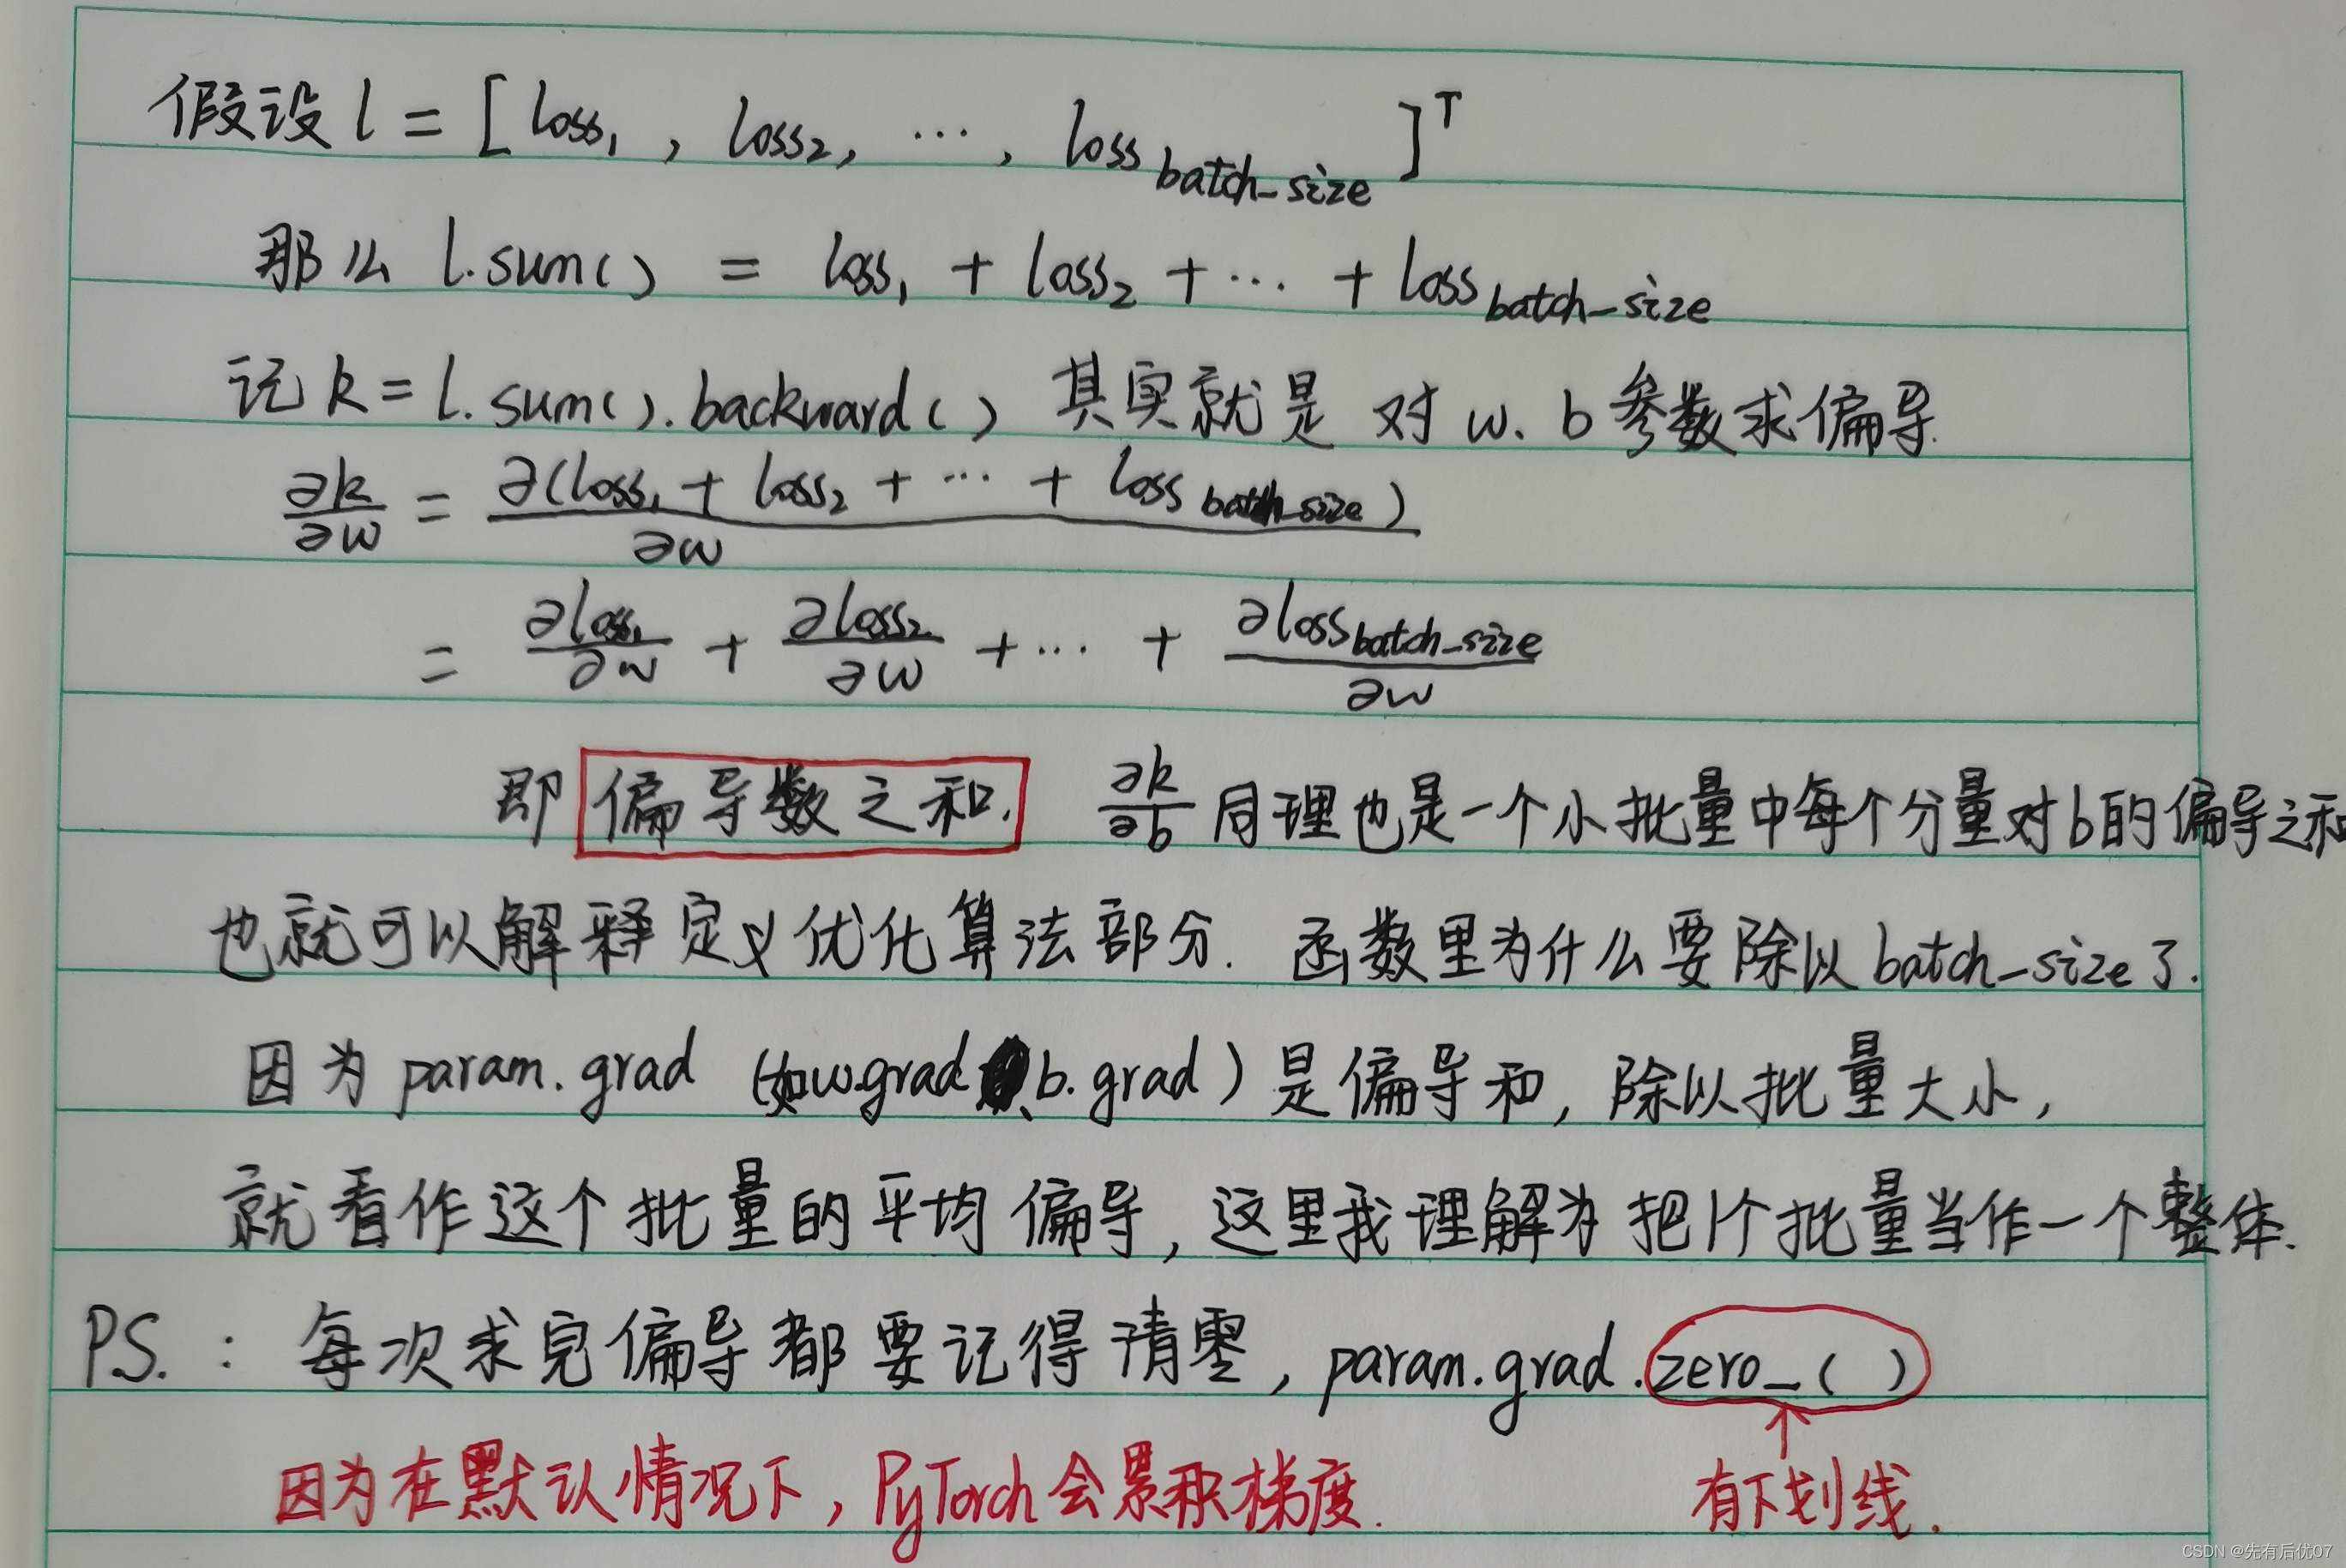 假设 l = [ loss₁ , loss₂, … , loss batch_size ]ᵀ
那么 l.sum() = loss₁ + loss₂ + … + loss batch_size
记 k = l.sum().backward() 其实就是 对 w、b 参数求偏导.
∂k/∂w = ∂(loss₁ + loss₂ + … + loss batch_size)/∂w
= ∂loss₁/∂w + ∂loss₂/∂w + … + ∂loss batch_size/∂w
即 偏导数之和. ∂k/∂b 同理也是一个小批量中每个分量对b的偏导之和
也就可以解释定义优化算法部分. 函数里为什么要除以 batch_size 了.
因为 param.grad (如w.grad、b.grad) 是偏导和, 除以批量大小,
就看作这个批量的平均偏导, 这里我理解为把1个批量当作一个整体.
P.S. : 每次求完偏导都要记得清零, param.grad.zero_( )
因为在默认情况下, PyTorch会累积梯度. 有下划线.
CSDN @先有后优07